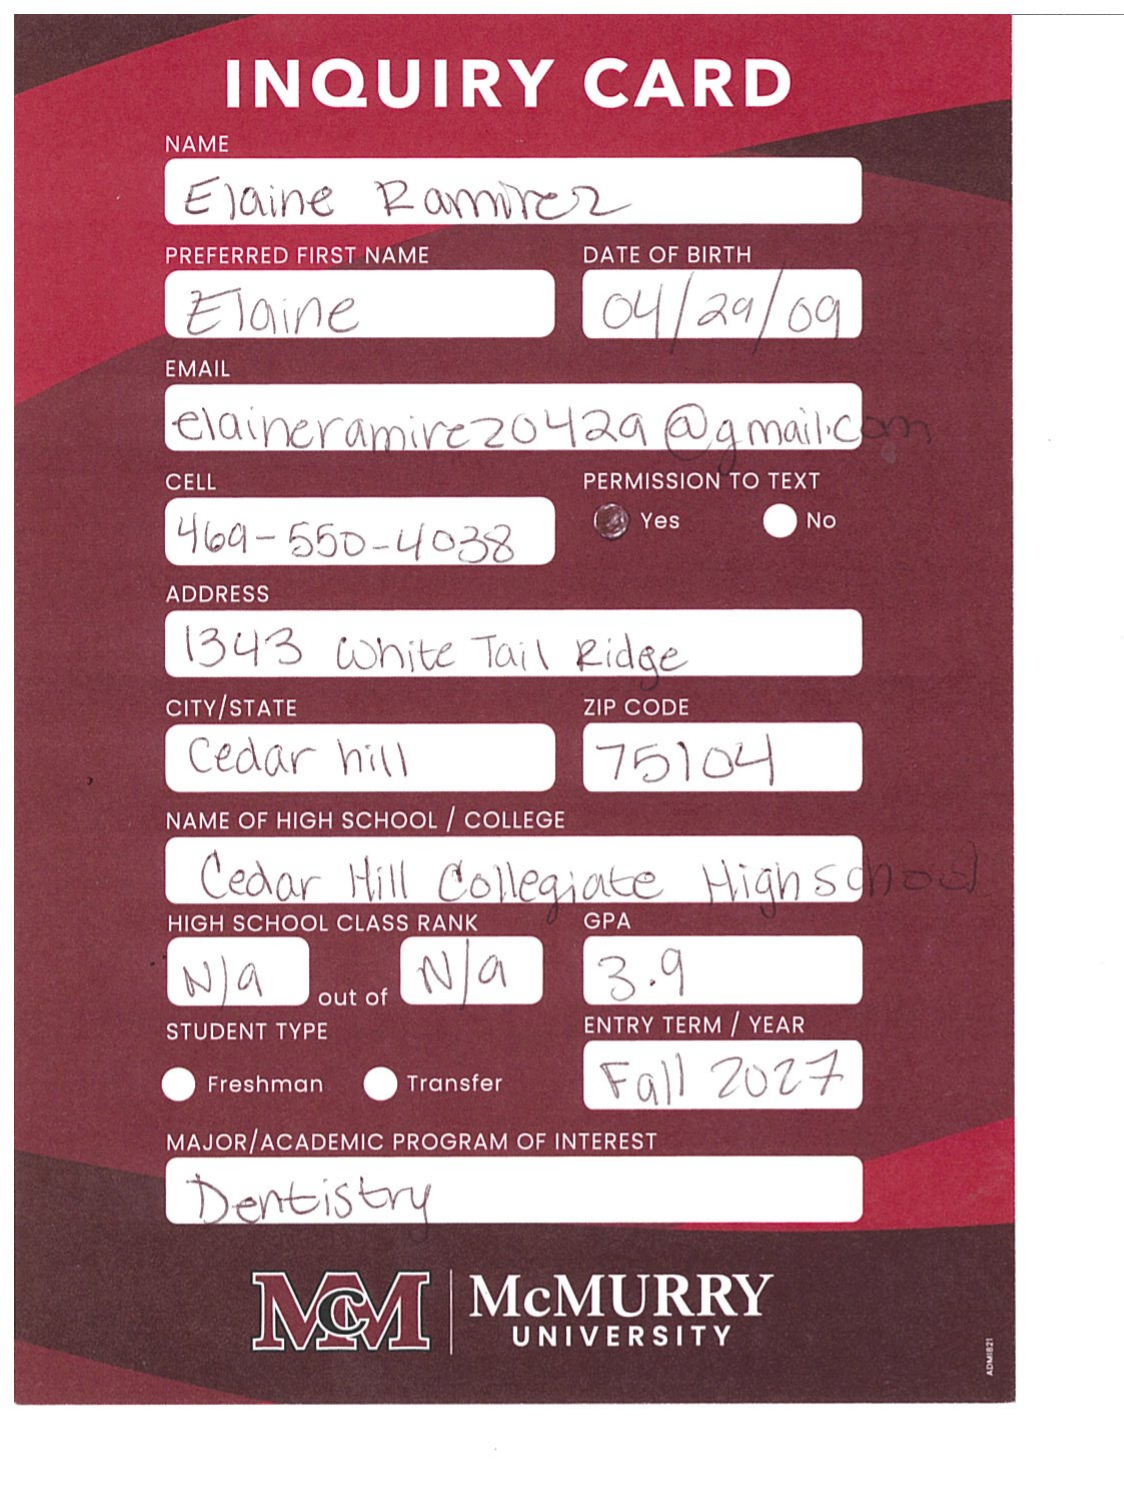 INQUIRY CARD
NAME
Elaine Ramirez
PREFERRED FIRST NAME DATE OF BIRTH
Elaine 04/29/09
EMAIL
elaineramirez0429@gmail.com
CELL PERMISSION TO TEXT
469-550-4038 Yes No
ADDRESS
1343 White Tail Ridge
CITY/STATE ZIP CODE
Cedar hill 75104
NAME OF HIGH SCHOOL / COLLEGE
Cedar Hill Collegiate High school
HIGH SCHOOL CLASS RANK GPA
N/a out of N/a 3.9
STUDENT TYPE ENTRY TERM / YEAR
Freshman Transfer Fall 2027
MAJOR/ACADEMIC PROGRAM OF INTEREST
Dentistry
MCM McMURRY
UNIVERSITY
ADM1821